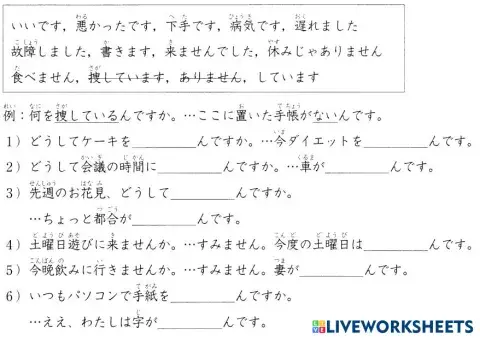 いいです，悪かったです，下手です，病気です，遅れました
故障しました，書きます，来ませんでした，休みじゃありません
食べません，捜しています，ありません，しています
例：何を捜しているんですか。…ここに置いた手帳がないんです。
1）どうしてケーキを________んですか。…今ダイエットを________んです。
2）どうして会議の時間に________んですか。…車が________んです。
3）先週のお花見、どうして________んですか。
…ちょっと都合が________んです。
4）土曜日遊びに来ませんか。…すみません。今度の土曜日は________んです。
5）今晩飲みに行きませんか。…すみません。妻が________んです。
6）いつもパソコンで手紙を________んですか。
…ええ、わたしは字が________んです。
LIVEWORKSHEETS